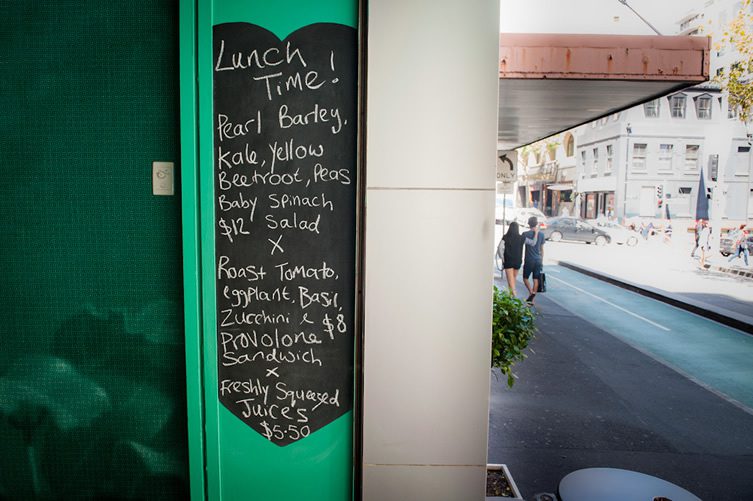 Lunch
Time!
Pearl Barley,
Kale, Yellow
Beetroot, Peas
Baby Spinach
$12 Salad
X
Roast Tomato,
eggplant, Basil,
Zucchini & $8
Provolone
Sandwich
X
Freshly Squeezed
Juice's
$5.50
ONLY